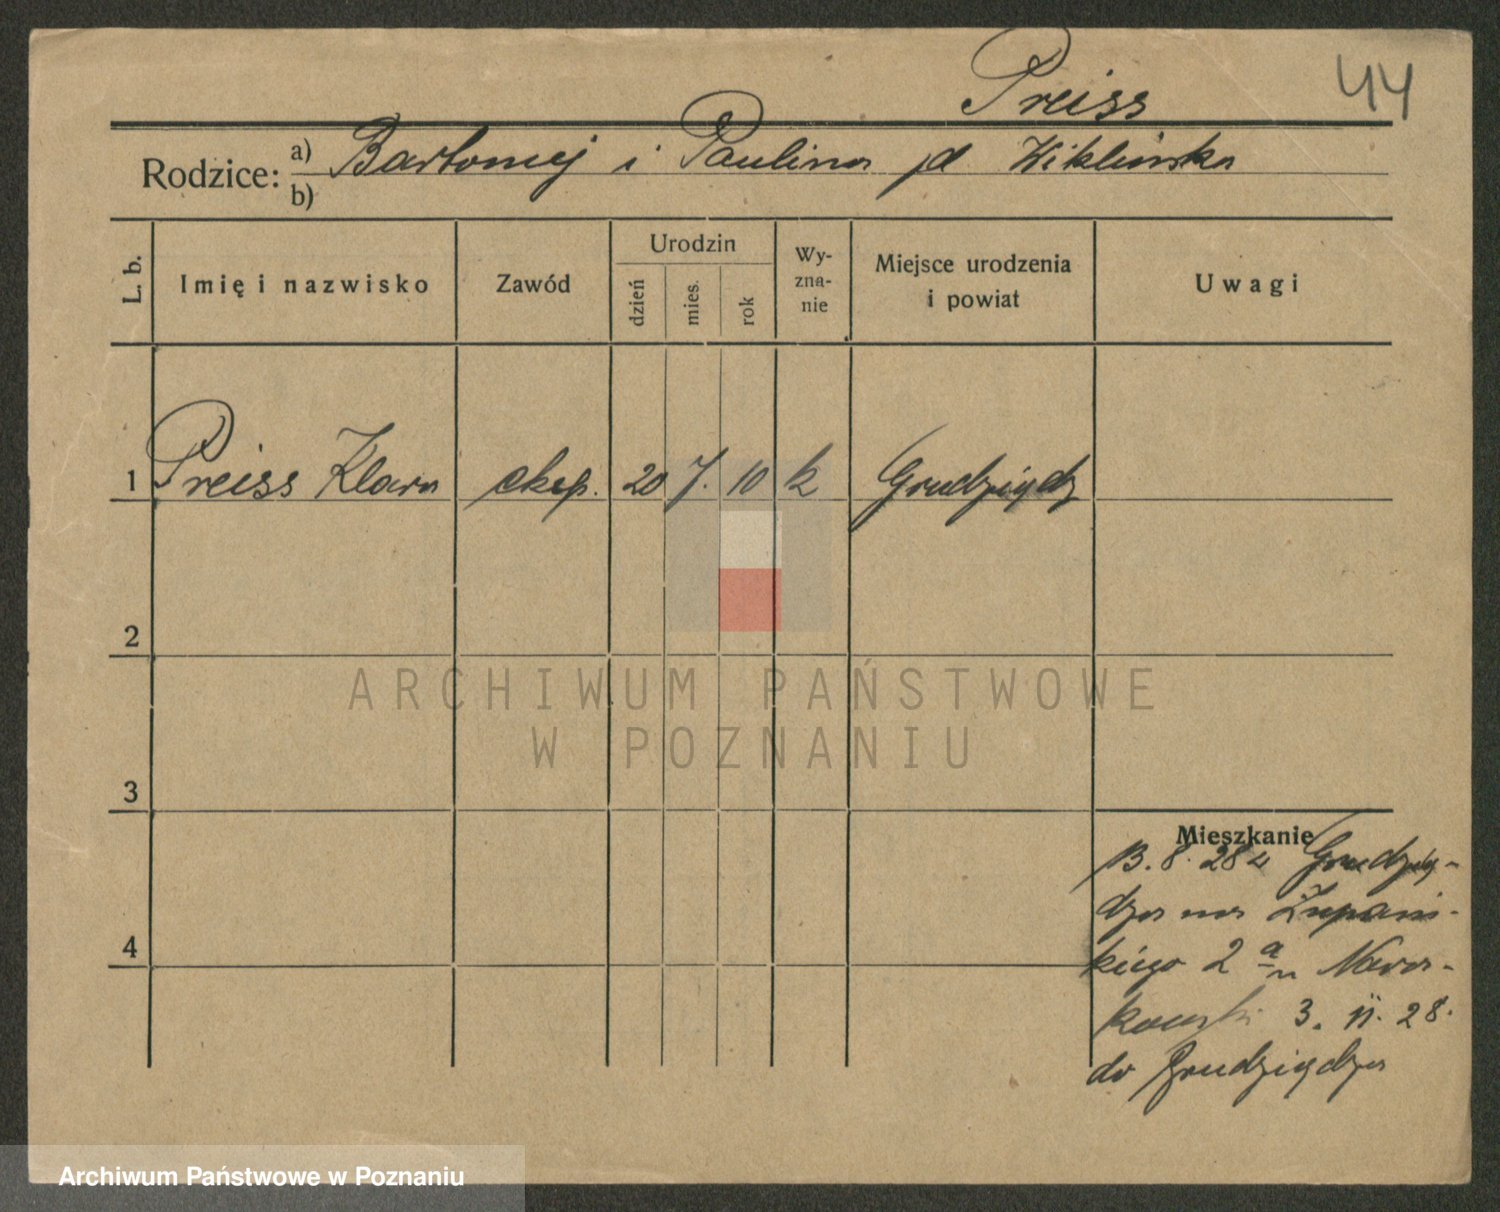 Preiss
44
Rodzice: a) Bartomej i Paulina Wiklinska
b)
L. b.
Imię i nazwisko
Zawód
Urodzin
dzień
mies.
rok
Wy-
zna-
nie
Miejsce urodzenia
i powiat
Uwagi
1 Preiss Klara eksp. 20 7. 10 k Grudziądz
2
3
4
Mieszkanie
13. 8. 28 Grudzią-
dza na Żupań-
skiego 2 a Nawro-
kowski 3. 11. 28.
do Grudziądza
ARCHIWUM PAŃSTWOWE
W POZNANIU
Archiwum Państwowe w Poznaniu